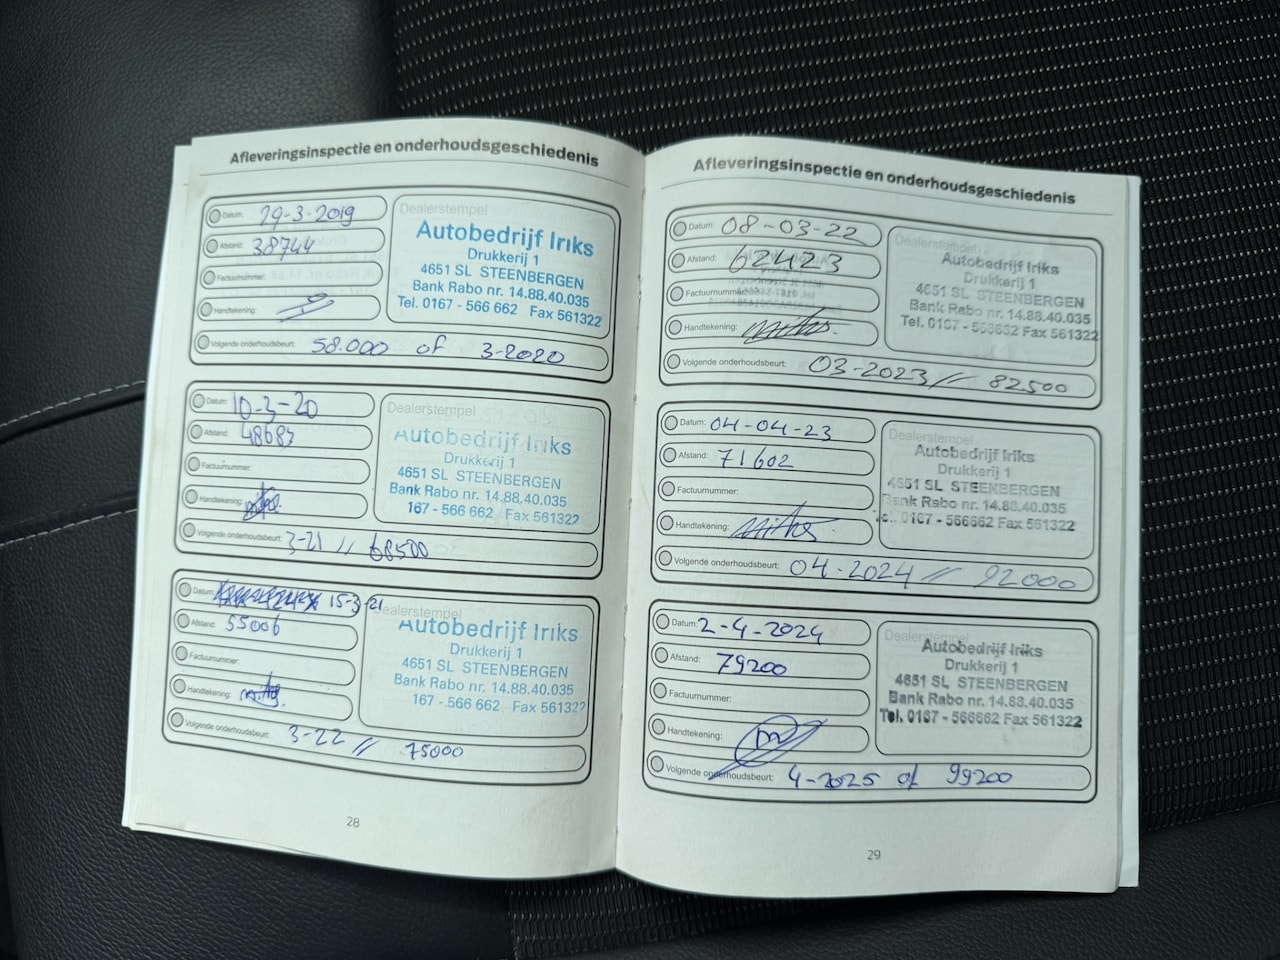 Afleveringsinspectie en onderhoudsgeschiedenis
Datum: 29-3-2019
Afstand: 38744
Factuurnummer:
Handtekening:
Volgende onderhoudsbeurt: 58.000 of 3-2020
Dealerstempel
Autobedrijf Iriks
Drukkerij 1
4651 SL STEENBERGEN
Bank Rabo nr. 14.88.40.035
Tel. 0167 - 566 662 Fax 561322
Datum: 10-3-20
Afstand: 48683
Factuurnummer:
Handtekening:
Volgende onderhoudsbeurt: 3-21 // 68500
Dealerstempel
Autobedrijf Iriks
Drukkerij 1
4651 SL STEENBERGEN
Bank Rabo nr. 14.88.40.035
167 - 566 662 Fax 561322
Datum: 15-3-21
Afstand: 55006
Factuurnummer:
Handtekening:
Volgende onderhoudsbeurt: 3-22 // 75000
Dealerstempel
Autobedrijf Iriks
Drukkerij 1
4651 SL STEENBERGEN
Bank Rabo nr. 14.88.40.035
167 - 566 662 Fax 561322
28
Afleveringsinspectie en onderhoudsgeschiedenis
Datum: 08-03-22
Afstand: 62423
Factuurnummer:
Handtekening:
Volgende onderhoudsbeurt: 03-2023 // 82500
Dealerstempel
Autobedrijf Iriks
Drukkerij 1
4651 SL STEENBERGEN
Bank Rabo nr. 14.88.40.035
Tel. 0167 - 566662 Fax 561322
Datum: 04-04-23
Afstand: 71602
Factuurnummer:
Handtekening:
Volgende onderhoudsbeurt: 04-2024 // 92000
Dealerstempel
Autobedrijf Iriks
Drukkerij 1
4651 SL STEENBERGEN
Bank Rabo nr. 14.88.40.035
0167 - 566662 Fax 561322
Datum: 2-4-2024
Afstand: 79200
Factuurnummer:
Handtekening:
Volgende onderhoudsbeurt: 4-2025 of 99200
Dealerstempel
Autobedrijf Iriks
Drukkerij 1
4651 SL STEENBERGEN
Bank Rabo nr. 14.88.40.035
Tel. 0167 - 566662 Fax 561322
29